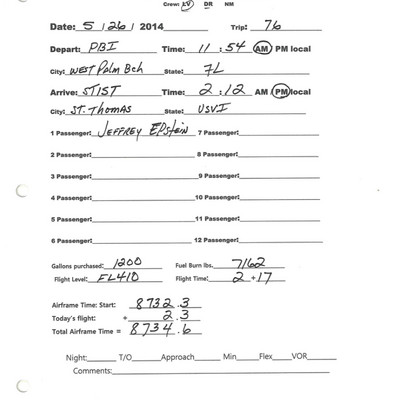 Crew: LV DR NM
Date: 5 / 26 / 2014 Trip: 76
Depart: PBI Time: 11 : 54 AM / PM local
City: WEST PALM BCH State: FL
Arrive: STIST Time: 2 : 12 AM / PM local
City: ST. THOMAS State: USVI
1 Passenger: JEFFREY EPSTEIN 7 Passenger:
2 Passenger: 8 Passenger:
3 Passenger: 9 Passenger:
4 Passenger: 10 Passenger:
5 Passenger: 11 Passenger:
6 Passenger: 12 Passenger:
Gallons purchased: 1200 Fuel Burn lbs. 7162
Flight Level: FL410 Flight Time: 2 + 17
Airframe Time: Start: 8732.3
Today's flight: + 2.3
Total Airframe Time = 8734.6
Night: T/O Approach Min Flex VOR
Comments: